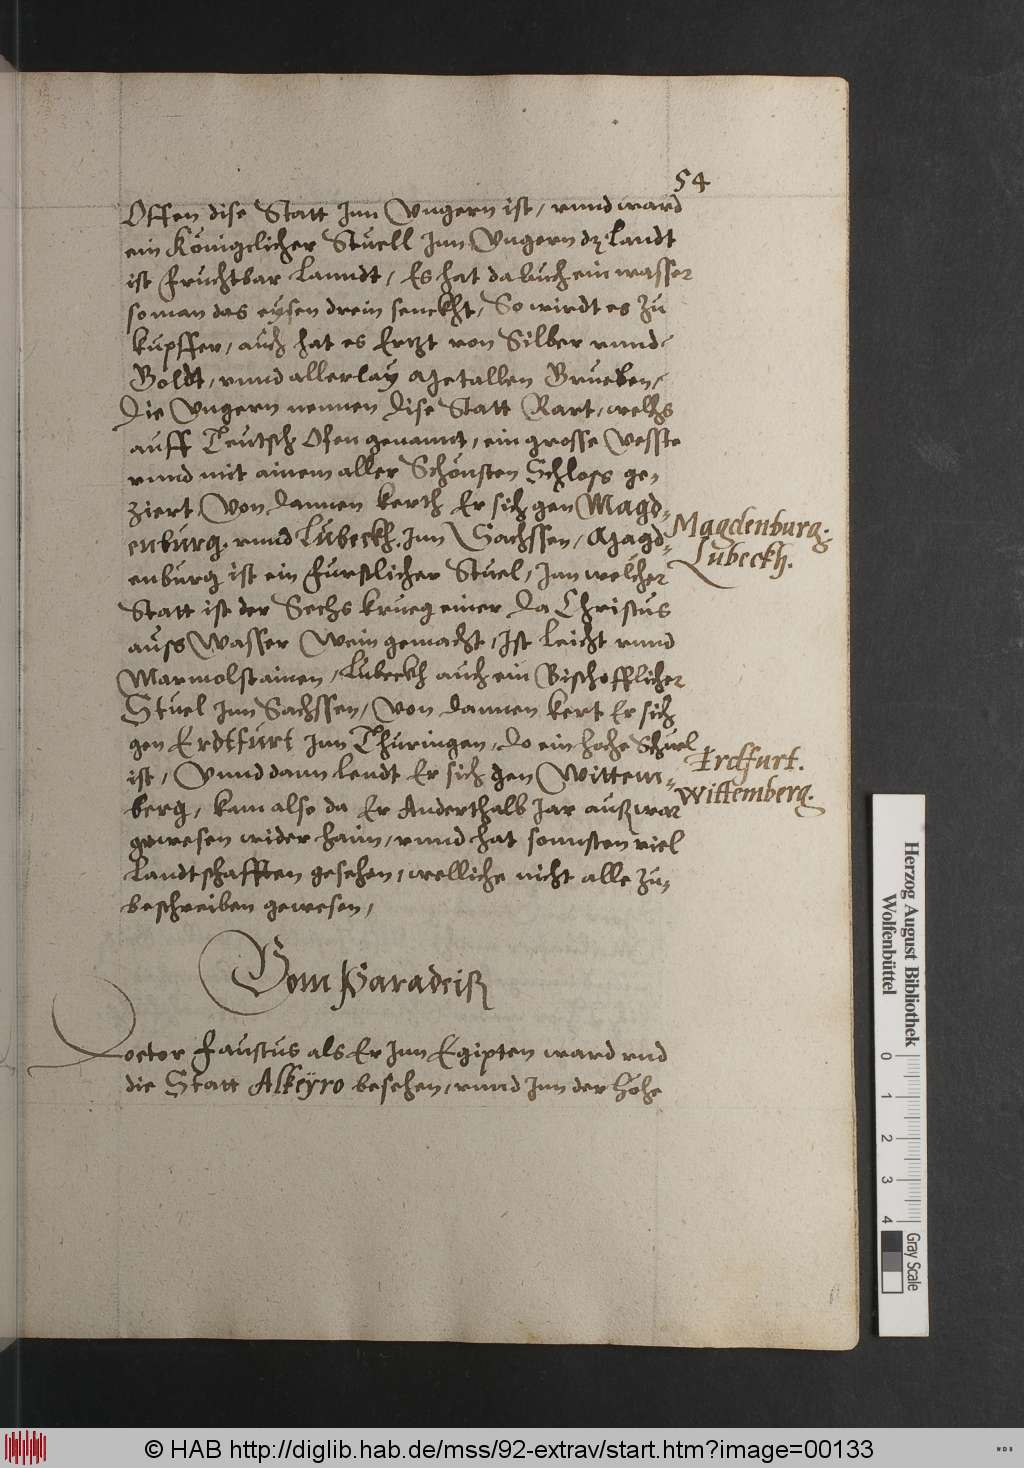 54
Offen dise Statt Jnn Vngern ist, vnnd ward
ein Königclicher Stuell Jnn Vngern dz Landt
ist fruchtbar Lanndt, Es hat da auch ein wasser
so man das eysen drein senckht, So wirdt es zu
kupffer, auch hat es Ertzt von Silber vnnd
Goldt, vnnd allerlay Metallen Grueben,
Die Vngern nennen dise Statt Start, welchs
auff Teutsch Ofen genannt, ein grosse vesste
vnnd mit ainem aller Schönsten Schloss ge,
ziert, Von dannen kerth Er sich gen Magd=
enburg. vnnd Lübeckh. Jnn Sachssen, Magd=
enburg ist ein furstlicher Stuel, Jnn welcher
Statt ist der Sechs krueg einer da Christus
auss Wasser Wein gemacht, Jst leicht vnnd
Marmolstainen, Lubeckh auch ein Bischofflicher
Stuel Jnn Sachssen, Von dannen kert Er sich
gen Erdtfurt Jnn Thüringen, do ein hohe Schuel
ist, Vnnd dann lendt Er sich gen Wittem=
berg, kam also da Er Anderthalb Jar außwar
gewesen wider haim, vnnd hat sonnsten viel
Landtschafften gesehen, welliche nicht alle zu,
beschreiben gewesen,
Magdenburg.
Lübeckh.
Erdfurt.
Wittemberg.
Vom Paradeiß
Doctor Faustus als Er Jnn Egipten ward vnd
die Statt Alkeÿro besehen, vnnd Jnn der Höhe
Herzog August Bibliothek
Wolfenbüttel
0
1
2
3
4
Gray Scale
© HAB http://diglib.hab.de/mss/92-extrav/start.htm?image=00133
WDB